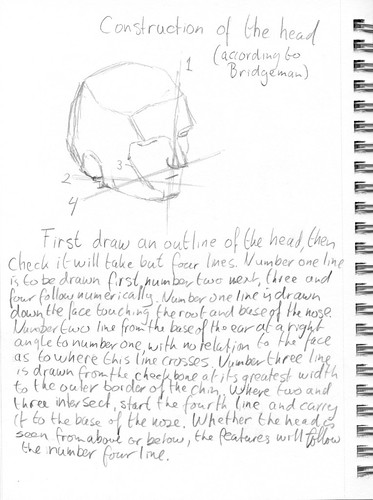 Construction of the head
(according to
Bridgeman)
1
3
2
4
First draw an outline of the head, then
check it will take but four lines. Number one line
is to be drawn first, number two next, three and
four follow numerically. Number one line is drawn
down the face touching the root and base of the nose.
Number two line from the base of the ear at a right
angle to number one, with no relation to the face
as to where this line crosses. Number three line
is drawn from the cheekbone at its greatest width
to the outer border of the chin. Where two and
three intersect, start the fourth line and carry
it to the base of the nose. Whether the head is
seen from above or below, the features will follow
the number four line.